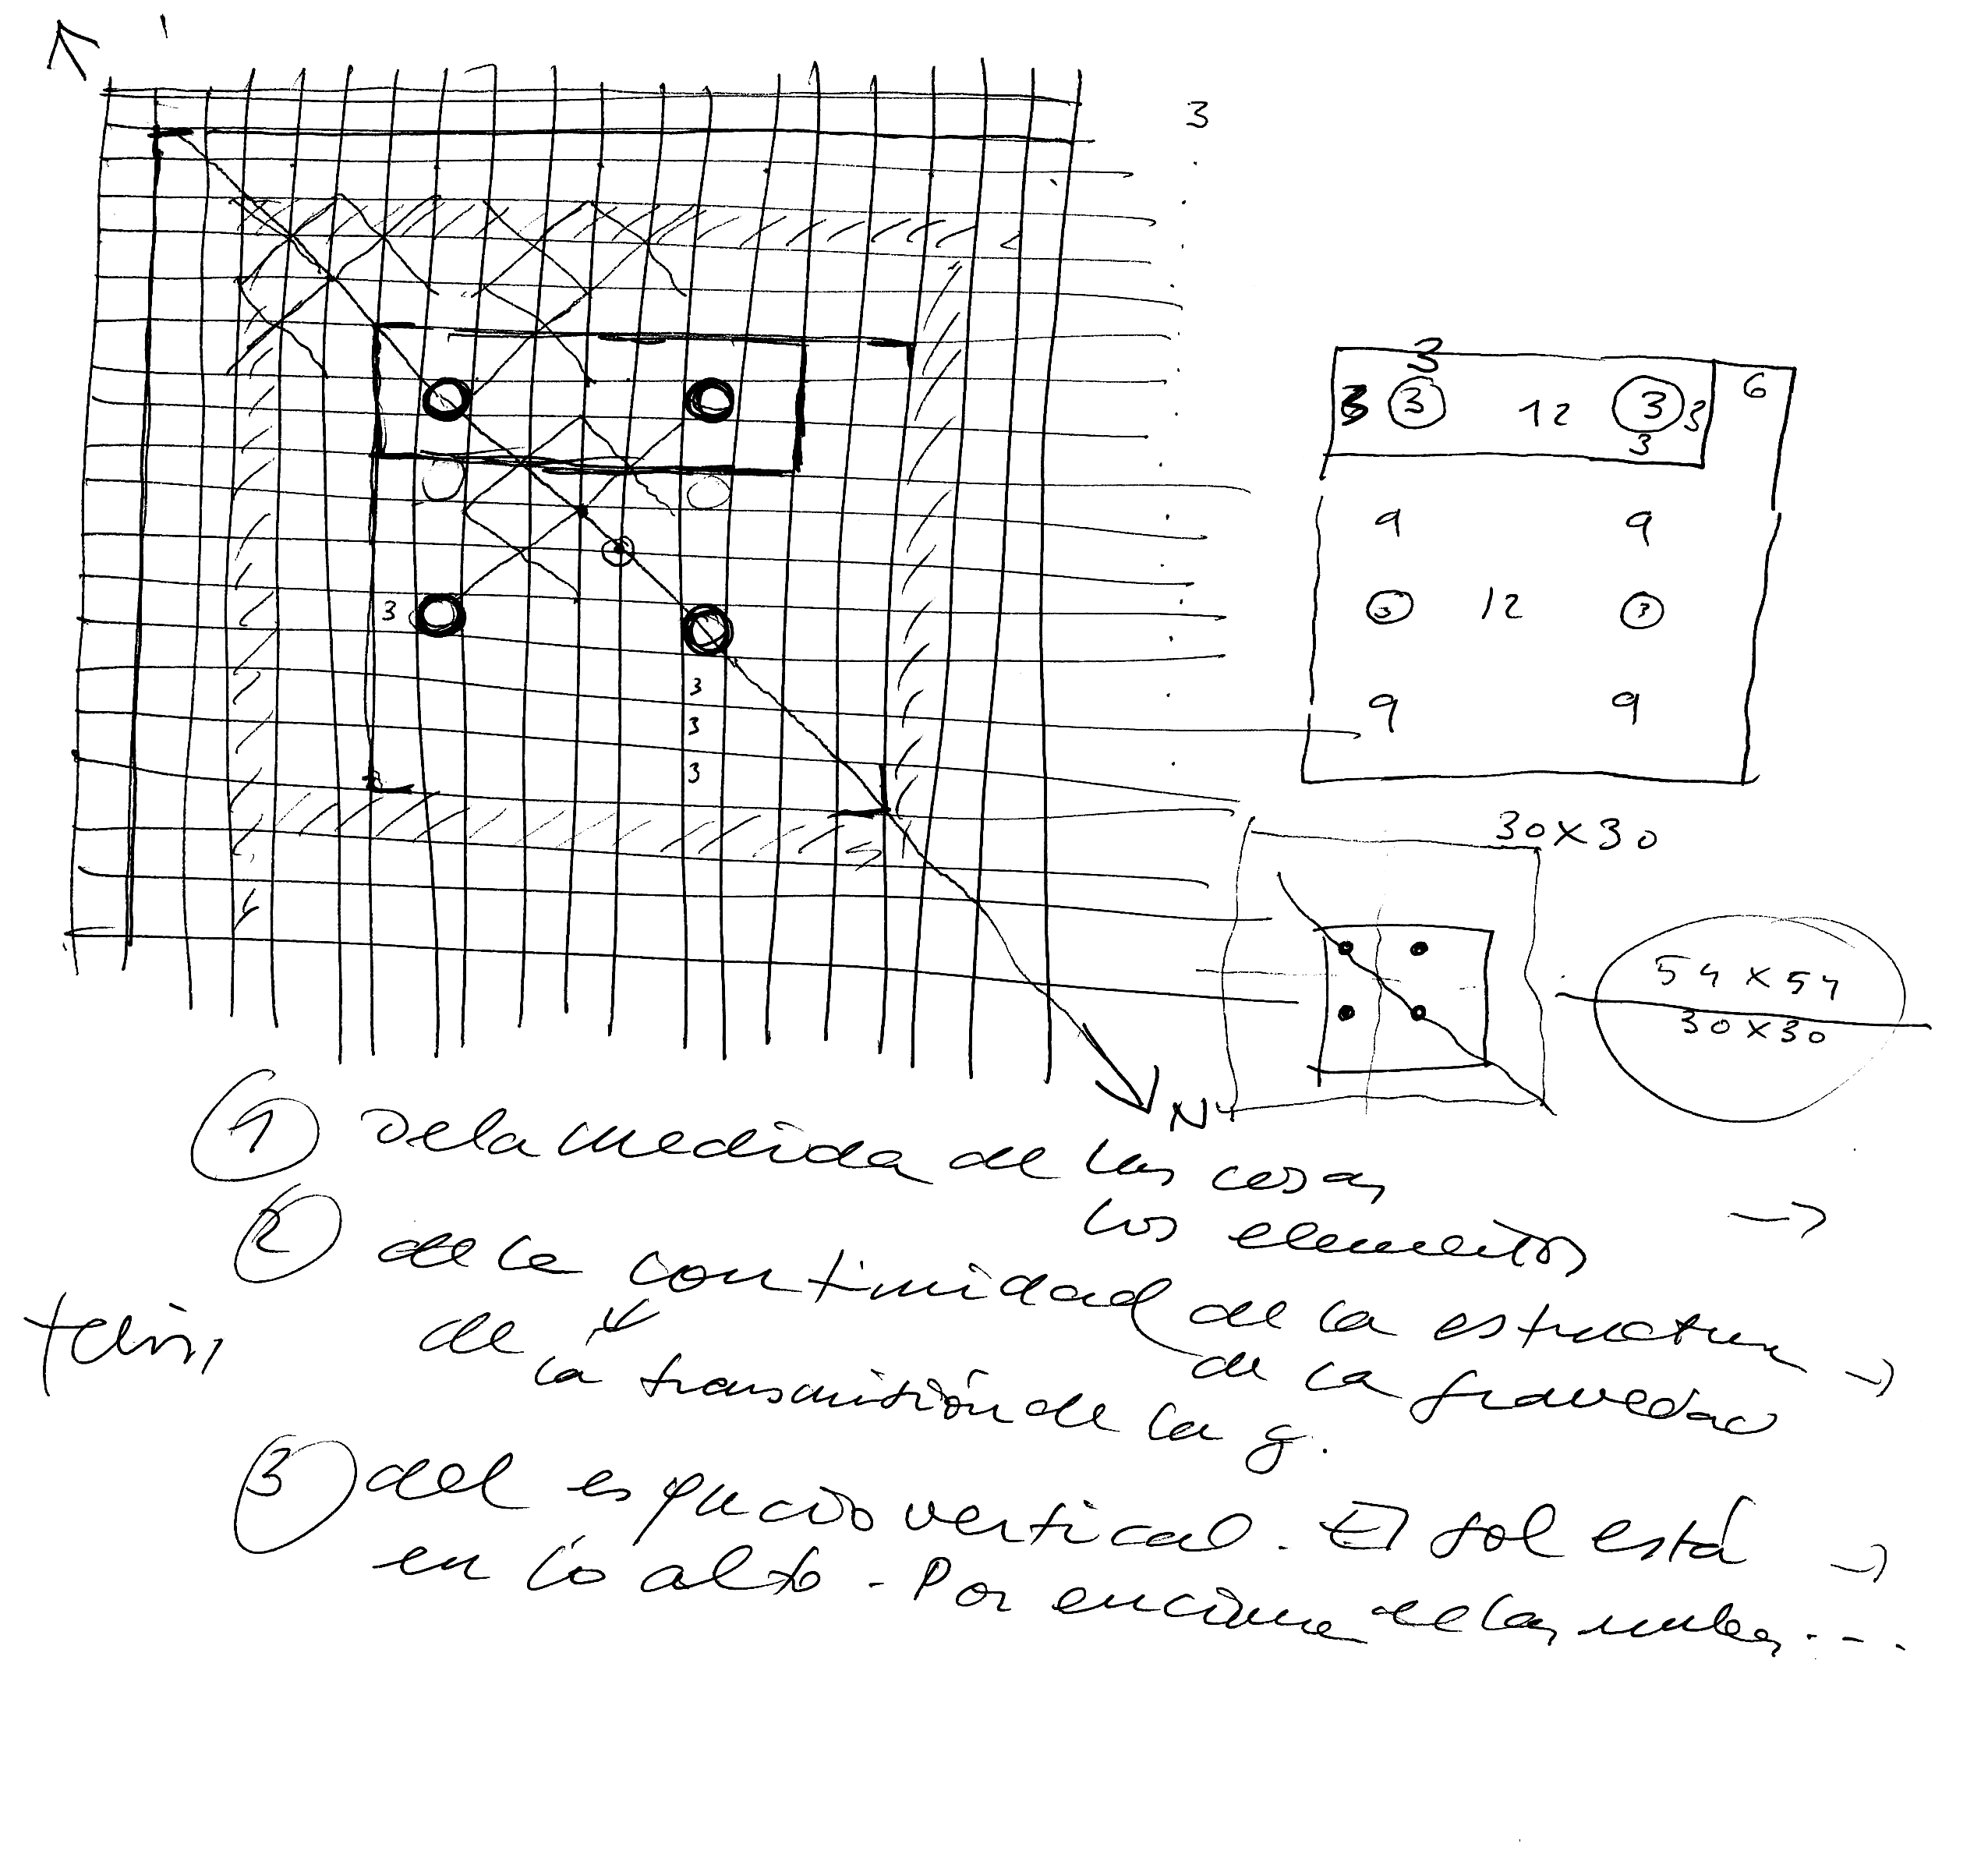 3
3 6
3 3 12 3 3
3
9 9
3 12 3
3
9 9
3
3
3
30 x 30
54 x 54
30 x 30
N
1 De la medida de las cosas
los elementos →
2 de la continuidad de la estructura →
de la gravedad
de la transmisión de la g.
3 del espacio vertical. El sol está →
en lo alto - Por encima de las nubes....